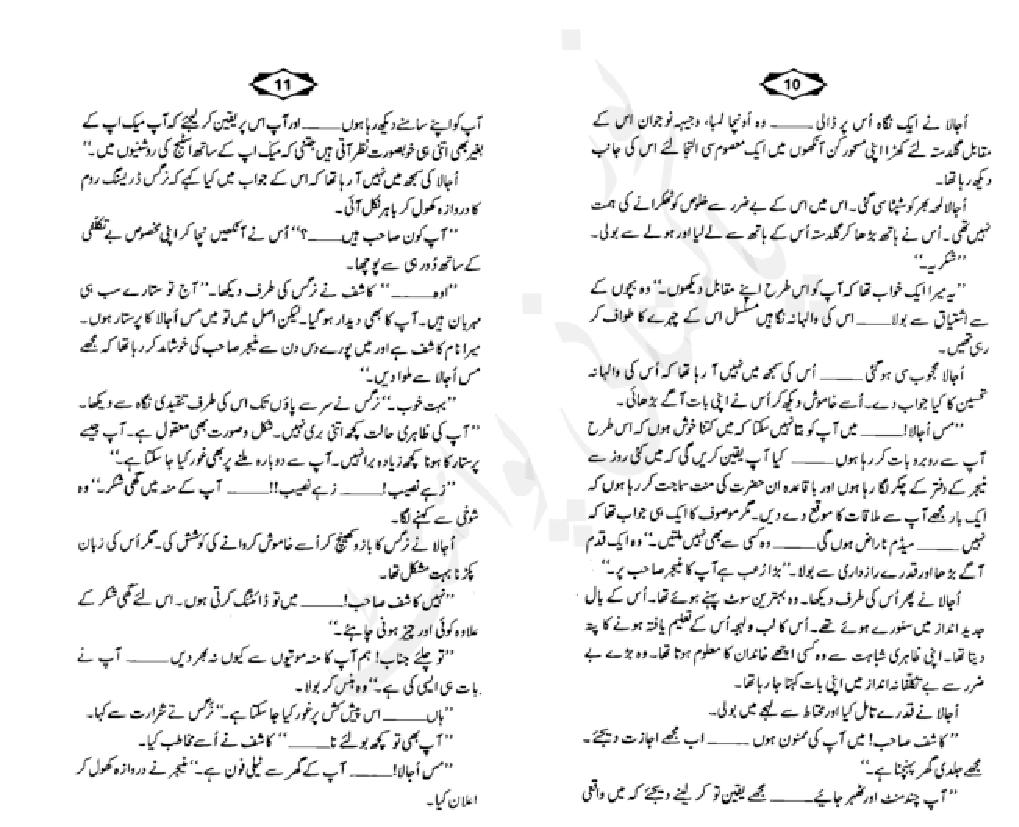 10
اُجالا نے ایک نگاہ اُس پر ڈالی ____ وہ اُونچا لمبا، وجیہہ نوجوان اس کے
مقابل گلدستہ لئے کھڑا اپنی مسحور کن آنکھوں میں ایک معصوم سی التجا لئے اس کی جانب
دیکھ رہا تھا۔
اُجالا لمحہ بھر کو شپٹا سی گئی۔ اس میں اس کے بے ضرر سے خلوص کو ٹھکرانے کی ہمت
نہیں تھی۔ اُس نے ہاتھ بڑھا کر گلدستہ اُس کے ہاتھ سے لے لیا اور ہولے سے بولی۔
’’شکریہ۔‘‘
’’یہ میرا ایک خواب تھا کہ آپ کو اس طرح اپنے مقابل دیکھوں۔‘‘ وہ بچوں کے
سے اشتیاق سے بولا ____ اس کی والہانہ نگاہیں مسلسل اس کے چہرے کا طواف کر
رہی تھیں۔
اُجالا محجوب سی ہو گئی ____ اُس کی سمجھ میں نہیں آ رہا تھا کہ اُس کی والہانہ
تحسین کا کیا جواب دے۔ اُسے خاموش دیکھ کر اُس نے اپنی بات آگے بڑھائی۔
’’مس اُجالا! ____ میں آپ کو بتا نہیں سکتا کہ میں کتنا خوش ہوں کہ اس طرح
آپ سے روبرو بات کر رہا ہوں ____ کیا آپ یقین کریں گی کہ میں کئی روز سے
منیجر کے دفتر کے چکر لگا رہا ہوں اور باقاعدہ ان حضرت کی منت سماجت کر رہا ہوں کہ
ایک بار مجھے آپ سے ملاقات کا موقع دے دیں۔ مگر موصوف کا ایک ہی جواب تھا کہ
نہیں ____ میڈم ناراض ہوں گی ____ وہ کسی سے بھی نہیں ملتیں۔‘‘ وہ ایک قدم
آگے بڑھا اور قدرے رازداری سے بولا۔ ’’بڑا رعب ہے آپ کا منیجر صاحب پر۔‘‘
اُجالا نے پھر اُس کی طرف دیکھا۔ وہ بہترین سوٹ پہنے ہوئے تھا۔ اُس کے بال
جدید انداز میں سنورے ہوئے تھے۔ اُس کا لب و لہجہ اُس کے تعلیم یافتہ ہونے کا پتہ
دیتا تھا۔ اپنی ظاہری شباہت سے وہ کسی اچھے خاندان کا معلوم ہوتا تھا۔ وہ بڑے بے
ضرر سے بے تکلفانہ انداز میں اپنی بات کہتا جا رہا تھا۔
اُجالا نے قدرے تامل کیا اور محتاط سے لہجے میں بولی۔
’’کاشف صاحب! میں آپ کی ممنون ہوں ____ اب مجھے اجازت دیجئے۔
مجھے جلدی گھر پہنچنا ہے۔‘‘
’’آپ چند منٹ اور ٹھہر جائیے ____ مجھے یقین تو کر لینے دیجئے کہ میں واقعی
11
آپ کو اپنے سامنے دیکھ رہا ہوں ____ اور آپ اس پر یقین کر لیجئے کہ آپ میک اپ کے
بغیر بھی اتنی ہی خوبصورت نظر آتی ہیں جتنی کہ میک اپ کے ساتھ اسٹیج کی روشنیوں میں۔‘‘
اُجالا کی سمجھ میں نہیں آ رہا تھا کہ اس کے جواب میں کیا کہے کہ نرگس ڈریسنگ روم
کا دروازہ کھول کر باہر نکل آئی۔
’’آپ کون صاحب ہیں ____؟‘‘ اُس نے آنکھیں نچا کر اپنی مخصوص بے تکلفی
کے ساتھ دُور ہی سے پوچھا۔
’’اوہ ____‘‘ کاشف نے نرگس کی طرف دیکھا۔ ’’آج تو ستارے سب ہی
مہربان ہیں۔ آپ کا بھی دیدار ہو گیا۔ لیکن اصل میں تو میں مس اُجالا کا پرستار ہوں۔
میرا نام کاشف ہے اور میں پورے دس دن سے منیجر صاحب کی خوشامد کر رہا تھا کہ مجھے
مس اُجالا سے ملوا دیں۔‘‘
’’بہت خوب۔‘‘ نرگس نے سر سے پاؤں تک اس کی طرف تنقیدی نگاہ سے دیکھا۔
’’آپ کی ظاہری حالت کچھ اتنی بری نہیں۔ شکل و صورت بھی معقول ہے۔ آپ جیسے
پرستار کا ہونا کچھ زیادہ برا نہیں۔ آپ سے دوبارہ ملنے پر بھی غور کیا جا سکتا ہے۔‘‘
’’زہے نصیب! ____ زہے نصیب!! ____ آپ کے منہ میں گھی شکر۔‘‘ وہ
شوخی سے کہنے لگا۔
اُجالا نے نرگس کا بازو کھینچ کر اُسے خاموش کروانے کی کوشش کی۔ مگر اُس کی زبان
پکڑنا بہت مشکل تھا۔
’’نہیں کاشف صاحب! ____ میں تو ڈائٹنگ کرتی ہوں۔ اس لئے گھی شکر کے
علاوہ کوئی اور چیز ہونی چاہئے۔‘‘
’’تو چلئے جناب! ہم آپ کا منہ موتیوں سے کیوں نہ بھر دیں ____ آپ نے
بات ہی ایسی کی ہے۔‘‘ وہ ہنس کر بولا۔
’’ہاں ____ اس پیش کش پر غور کیا جا سکتا ہے۔‘‘ نرگس نے شرارت سے کہا۔
’’آپ بھی تو کچھ بولئے نا ____‘‘ کاشف نے اُسے مخاطب کیا۔
’’مس اُجالا! ____ آپ کے گھر سے ٹیلی فون ہے۔‘‘ منیجر نے دروازہ کھول کر
اعلان کیا۔